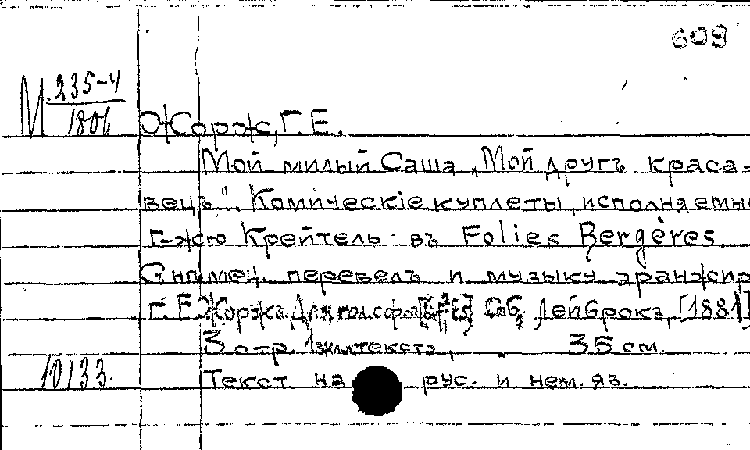 609
М 235-4
1806
Жорж, Г. Е.
Мой милый Саша „Мой другъ краса-
вецъ". Комическіе куплеты, исполняемые
г-жею Крейтель въ Folies Bergères
С нѣмец. перевелъ и музыку аранжир
Г. Е. Жоржъ. Для гол. с ф. СПб, Лейброкъ, [1881]
3 стр. текста, 35 см.
10133.
Текст на рус. и нем. яз.